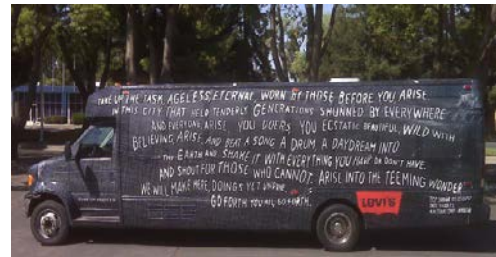 TAKE UP THE TASK AGELESS, ETERNAL, WORN BY THOSE BEFORE YOU. ARISE
IN THIS CITY THAT HELD TENDERLY GENERATIONS SHUNNED BY EVERYWHERE
AND EVERYONE. ARISE, YOU DOERS, YOU ECSTATIC BEAUTIFUL, WILD WITH
BELIEVING. ARISE, AND BEAT A SONG A DRUM A DAYDREAM INTO
THE EARTH AND SHAKE IT WITH EVERYTHING YOU HAVE OR DON'T HAVE.
AND SHOUT FOR THOSE WHO CANNOT. ARISE INTO THE TEEMING WONDER
WE WILL MAKE HERE, DOINGS YET UNDONE.
GO FORTH YOU ALL GO FORTH.
LEVI'S